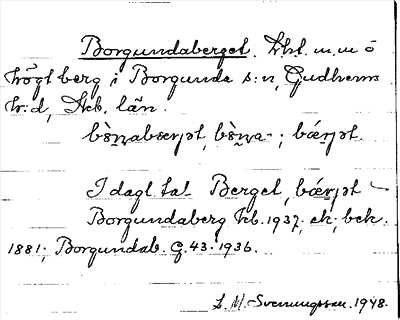 Borgundaberget. Lht. m. m ö
högt berg i Borgunda s:n, Gudhems
h:d, Skb. län.
bòṉabærjət, bòṉa- ; bǽrjət.
I dagl. tal Berget, bǽrjət
Borgundaberg kb. 1937; ek; bek.
1881; Borgundab. G. 43. 1936.
L. M. Svenungsson. 1948.